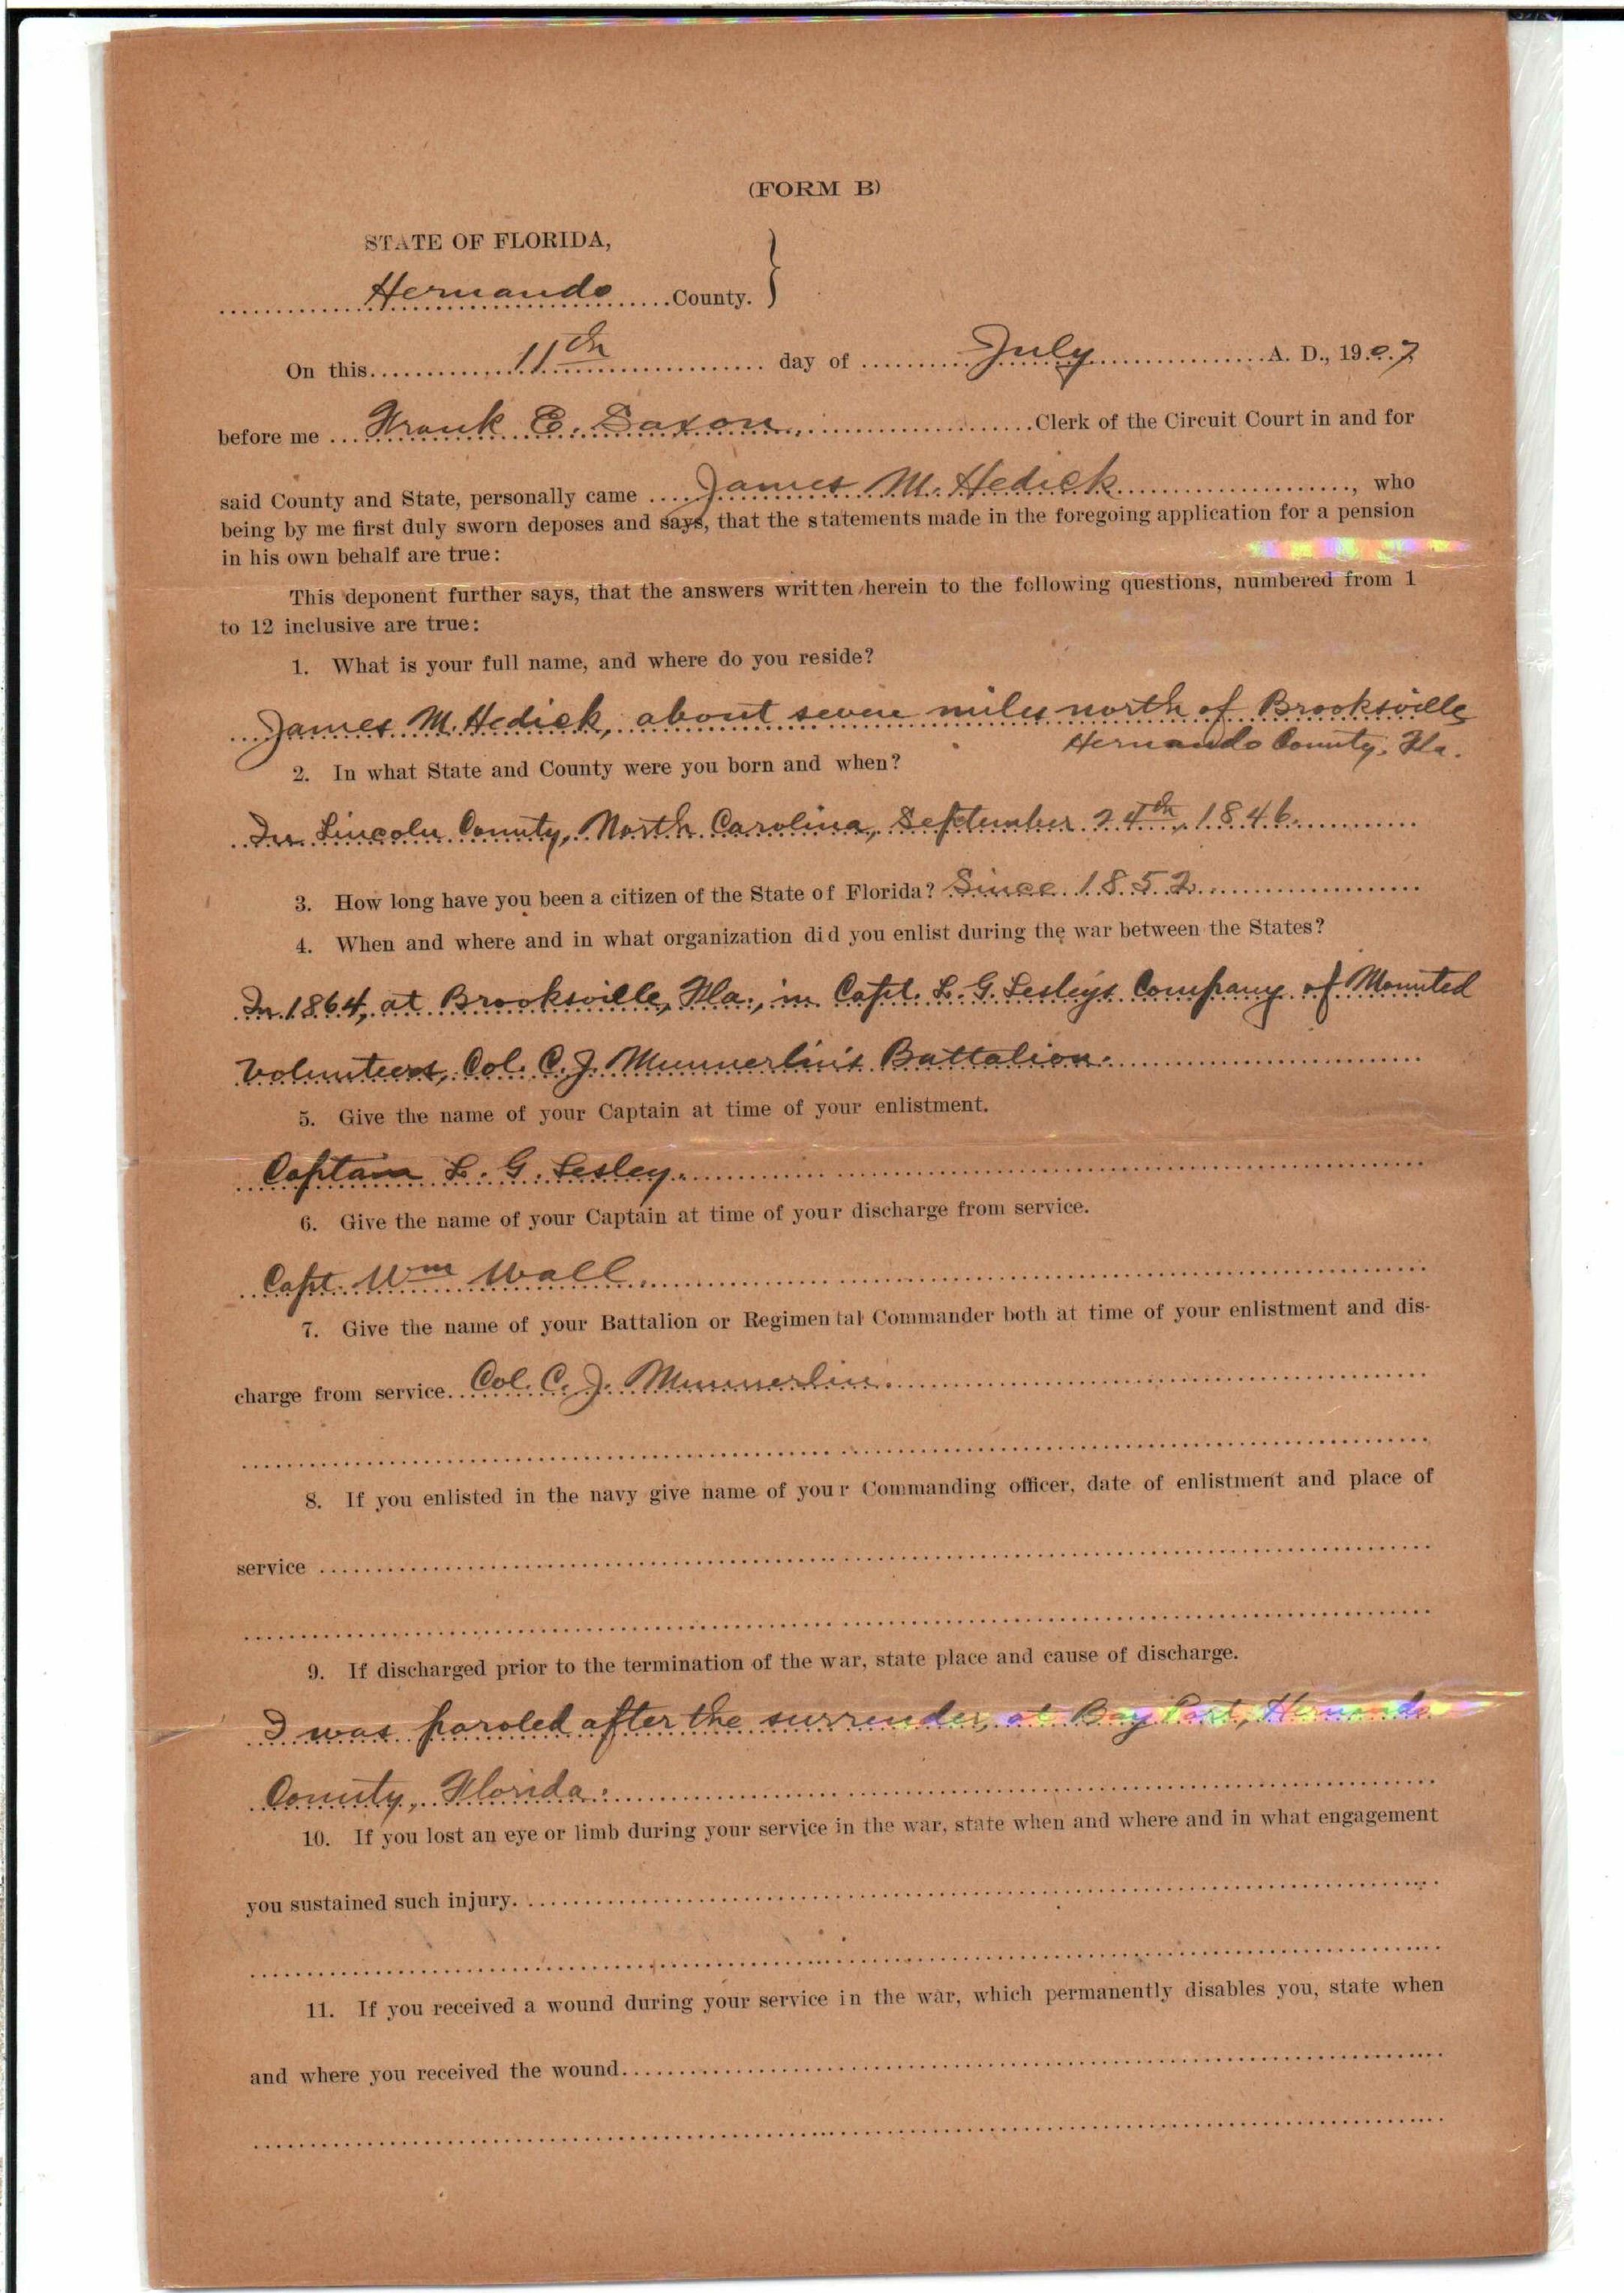 (FORM B)
STATE OF FLORIDA,
Hernando County.
On this 11th day of July A. D., 1907
before me Frank E. Saxon, Clerk of the Circuit Court in and for
said County and State, personally came James M. Hedick, who
being by me first duly sworn deposes and says, that the statements made in the foregoing application for a pension
in his own behalf are true:
This deponent further says, that the answers written herein to the following questions, numbered from 1
to 12 inclusive are true:
1. What is your full name, and where do you reside?
James M. Hedick, about seven miles north of Brooksville
Hernando County, Fla.
2. In what State and County were you born and when?
In Lincoln County, North Carolina, September 24th, 1846.
3. How long have you been a citizen of the State of Florida? Since 1852
4. When and where and in what organization did you enlist during the war between the States?
In 1864, at Brooksville, Fla., in Capt. L. G. Lesleys Company of Mounted
Volunteers, Col. C. J. Munnerlin's Battalion.
5. Give the name of your Captain at time of your enlistment.
Captain L. G. Lesley.
6. Give the name of your Captain at time of your discharge from service.
Capt. Wm Wall.
7. Give the name of your Battalion or Regimental Commander both at time of your enlistment and dis-
charge from service. Col. C. J. Munnerlin.
8. If you enlisted in the navy give name of your Commanding officer, date of enlistment and place of
service
9. If discharged prior to the termination of the war, state place and cause of discharge.
I was paroled after the surrender, at Bay Port, Hernando
County, Florida.
10. If you lost an eye or limb during your service in the war, state when and where and in what engagement
you sustained such injury.
11. If you received a wound during your service in the war, which permanently disables you, state when
and where you received the wound.